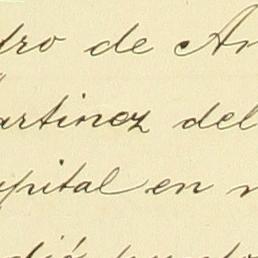 dro de Ar
artinez del
pital en n